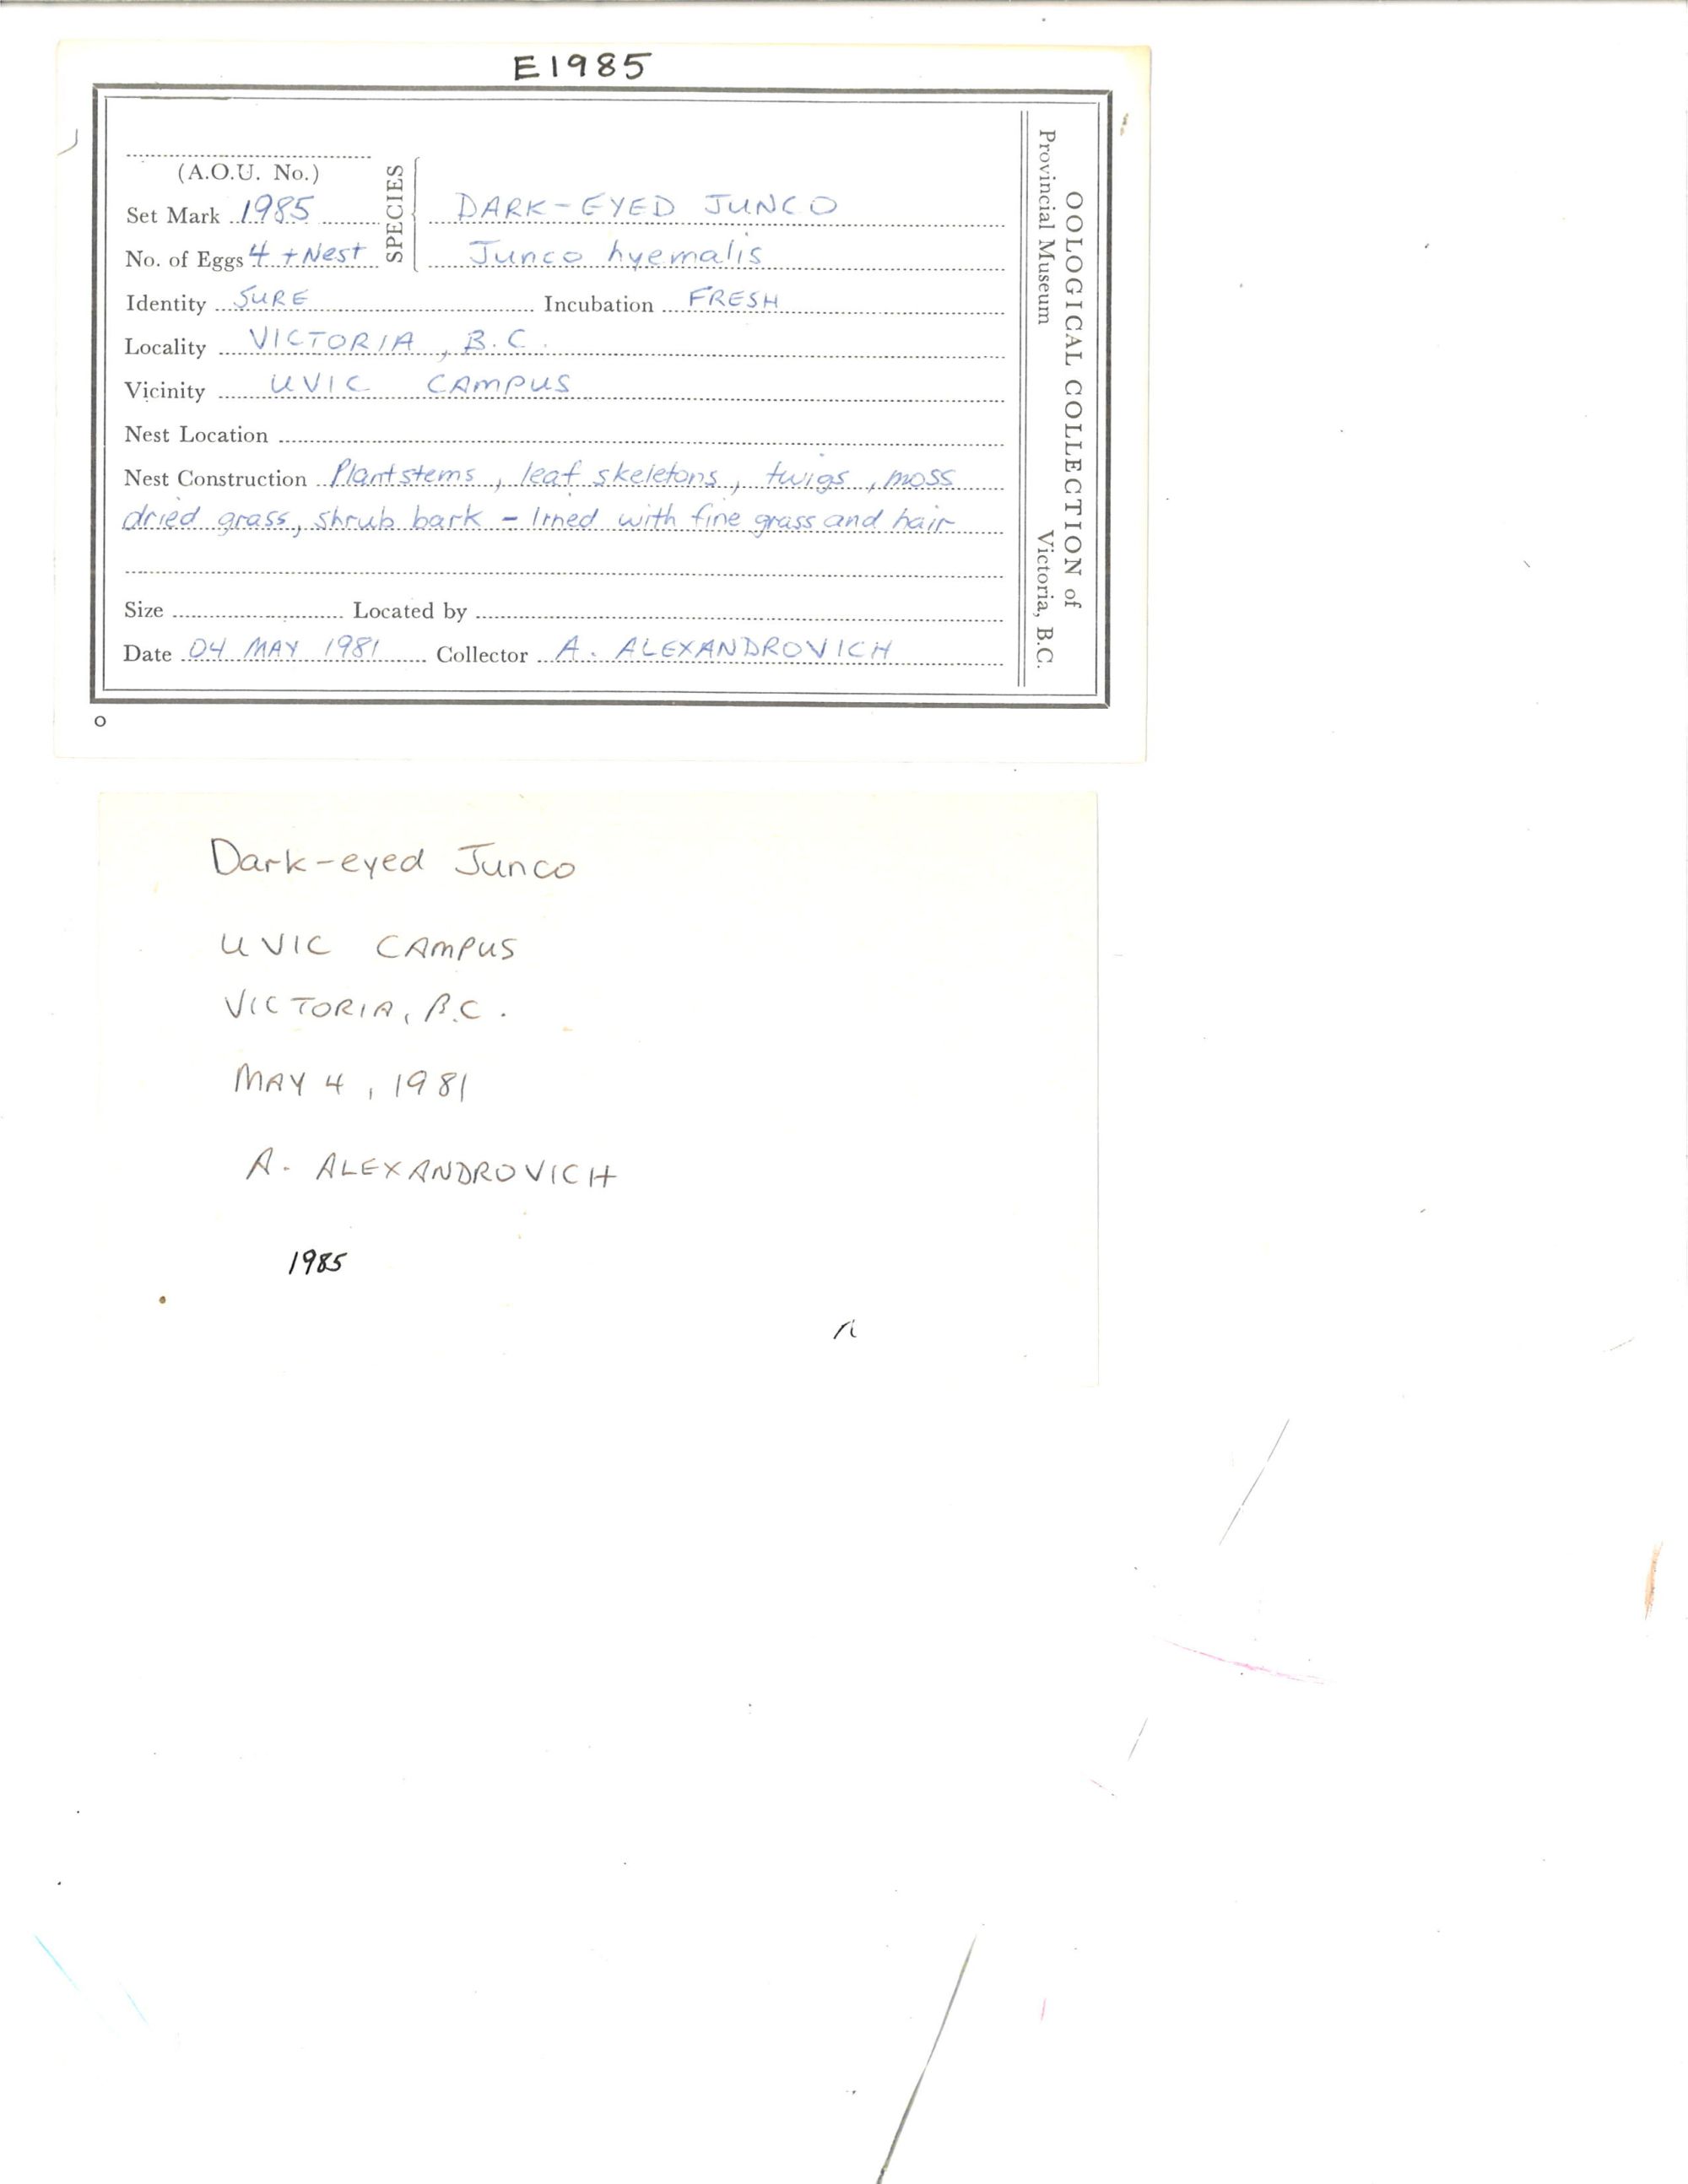 E1985
(A.O.U. No.)
SPECIES
Set Mark 1985
DARK-EYED JUNCO
No. of Eggs 4 + Nest
Junco hyemalis
Identity SURE Incubation FRESH
Locality VICTORIA, B.C.
Vicinity UVIC CAMPUS
Nest Location
Nest Construction Plant stems, leaf skeletons, twigs, moss
dried grass, shrub bark - lined with fine grass and hair
Size Located by
Date 04 MAY 1981 Collector A. ALEXANDROVICH
OOLOGICAL COLLECTION of
Provincial Museum Victoria, B.C.
O
Dark-eyed Junco
UVIC CAMPUS
VICTORIA, B.C.
MAY 4, 1981
A. ALEXANDROVICH
1985